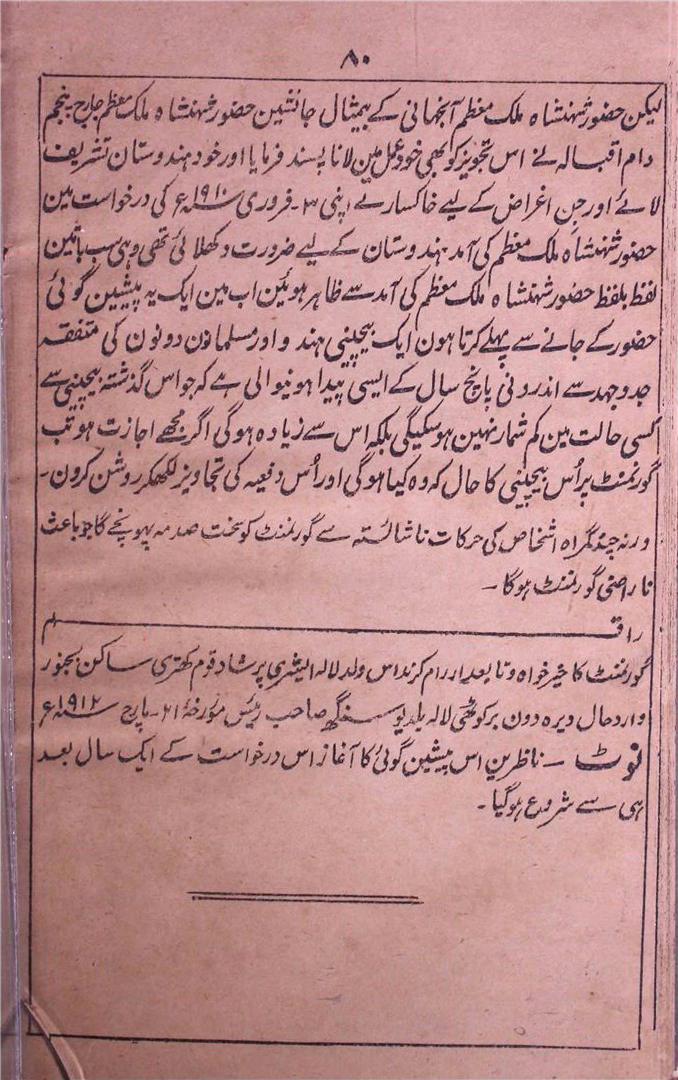 ۸۰
لیکن حضور شہنشاہ ملک معظم آنجہانی کے بیمثال جانشین حضور شہنشاہ ملک معظم جارج پنجم
دام اقبالہ نے اس تجویز کو بھی خود عمل مین لانا پسند فرمایا اور خود ہندوستان تشریف
لائے اور جن اغراض کے لیے خاکسار نے اپنی ۳۔ فروری ۱۹۱۰ء کی درخواست مین
حضور شہنشاہ ملک معظم کی آمد ہندوستان کے لیے ضرورت دکھلائی تھی وہی سب باتین
لفظ بلفظ حضور شہنشاہ ملک معظم کی آمد سے ظاہر ہوئین اب مین ایک یہ پیشین گوئی
حضور کے جانے سے پہلے کرتا ہون ایک بیچینی ہندو اور مسلمانون دونون کی متفقہ
جدوجہد سے اندرونی پانچ سال کے ایسی پیدا ہونیوالی ہے کہ جو اس گذشتہ بیچینی سے
کسی حالت مین کم شمار نہین ہوسکیگی بلکہ اس سے زیادہ ہوگی اگر مجھے اجازت ہو تب
گورنمنٹ پر اُس بیچینی کا حال کہ وہ کیا ہوگی اور اُس دفعیہ کی تجاویز لکھکر روشن کرون۔
ورنہ چند گمراہ اشخاص کی حرکات ناشائستہ سے گورنمنٹ کو سخت صدمہ پہونچے گا جو باعث
ناراضی گورنمنٹ ہوگا ۔
راقم
گورنمنٹ کا خیر خواہ وتابعدار رام کرنداس ولد لالہ ایشری پرشاد قوم کھتری ساکن بجنور
وارد حال دیرہ دون بر کوٹھی لالہ بلدیو سنگھ صاحب رئیس مورخۂ ۲۱۔ مارچ ۱۹۱۲ء
نوٹ ۔ ناظرین اس پیشین گوئی کا آغاز اس درخواست کے ایک سال بعد
ہی سے شروع ہوگیا ۔